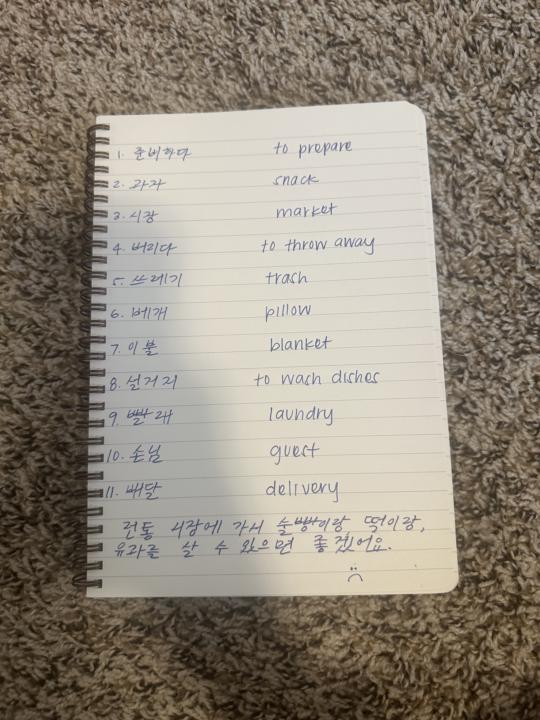 1. 준비하다 to prepare
2. 과자 snack
3. 시장 market
4. 버리다 to throw away
5. 쓰레기 trash
6. 베개 pillow
7. 이불 blanket
8. 설거지 to wash dishes
9. 빨래 laundry
10. 손님 guest
11. 배달 delivery
전통 시장에 가서 술빵이랑 떡이랑,
유과를 살 수 있으면 좋겠어요.